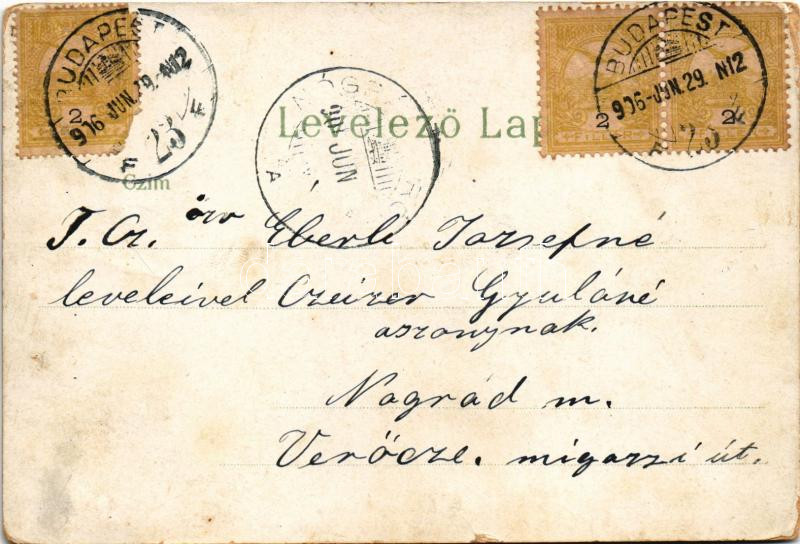 BUDAPEST
906-JUN.29. N12
23
F
2
BUDAPEST
906-JUN.29. N12
23
F
2 2
Levelező Lap
Czim
T. Cz. özv Eberli Jozsefné
leveleivel Czeizer Gyuláné
aszonynak.
Nográd m.
Verőcze. migazzi út.